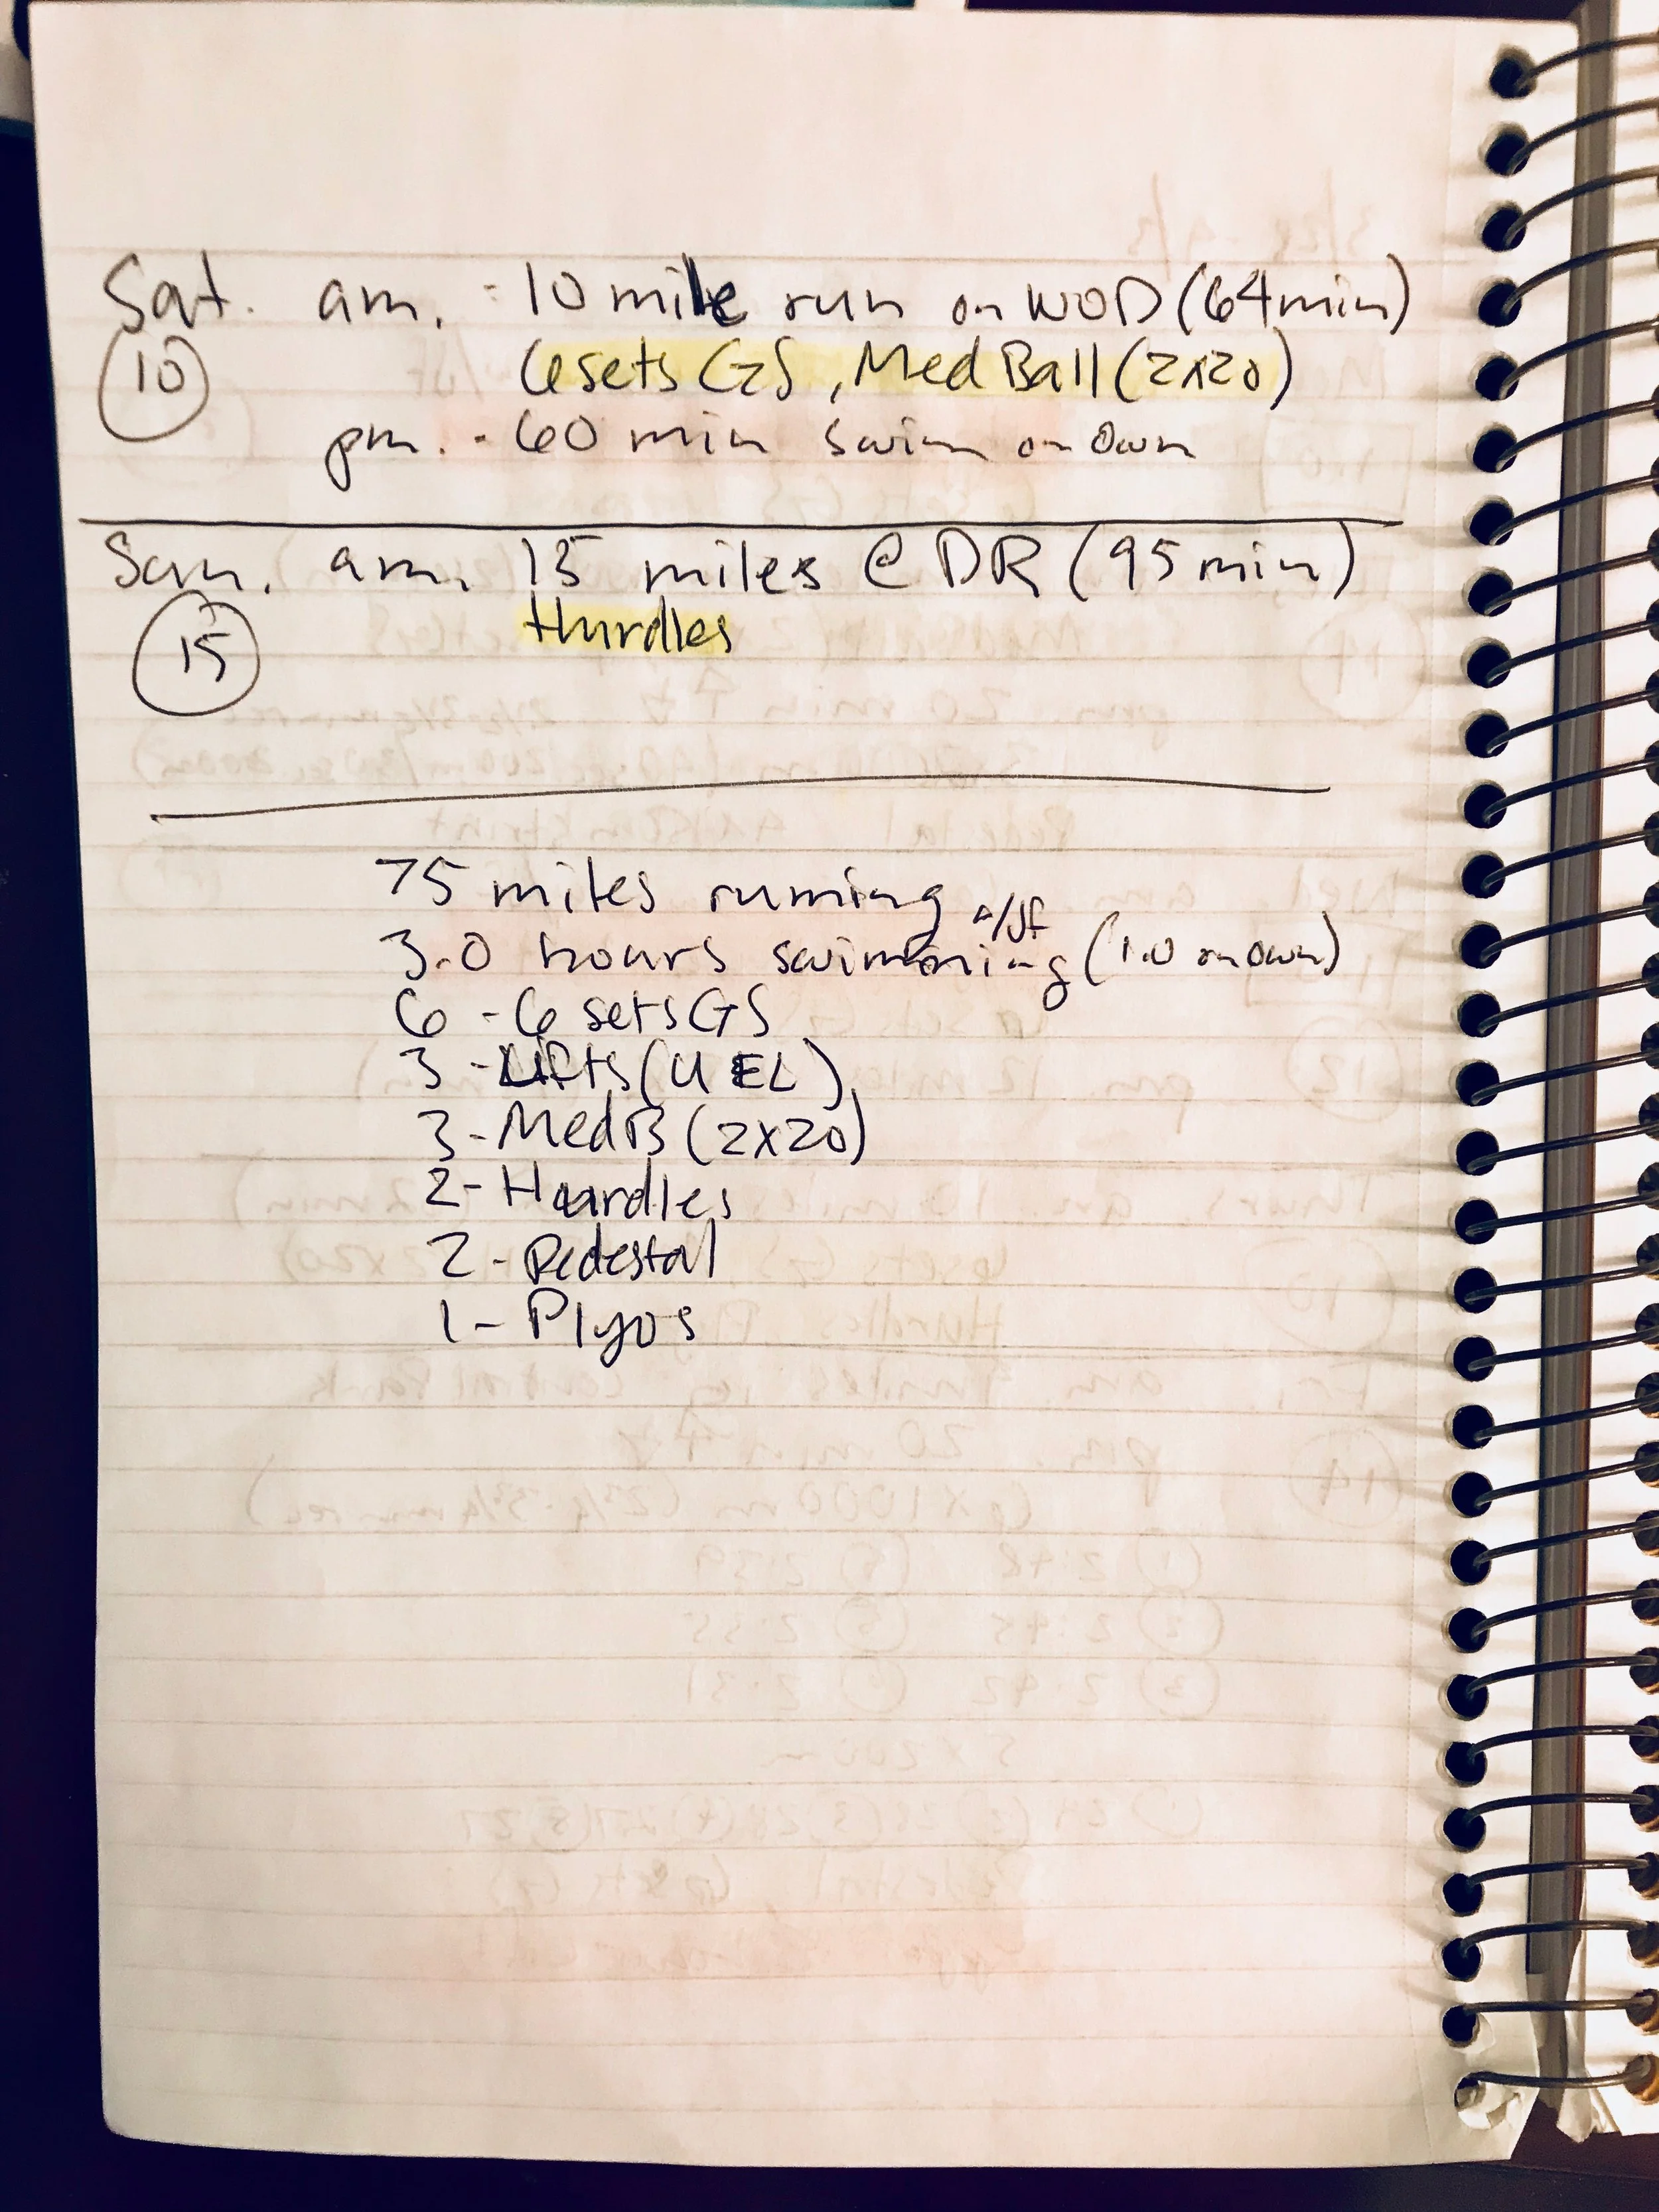 Sat. am. - 10 mile run on WOD (64min)
10
6 sets GS, Med Ball (2x20)
pm. - 60 min swim on Own
Sun. am. 15 miles @ DR (95min)
15
Hurdles
75 miles running
3.0 hours swimming (1.0 on own)
6 - 6 sets GS
3 - Lifts (U EL)
3 - MedB (2x20)
2 - Hurdles
2 - Pedestal
1 - Plyos